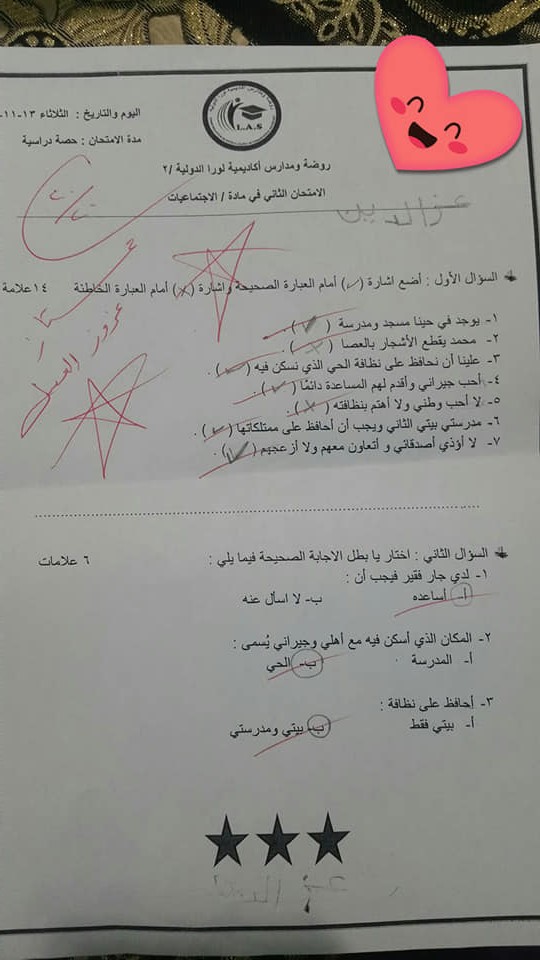 L.A.S
اليوم والتاريخ : الثلاثاء ١٣-١١-
مدة الامتحان : حصة دراسية
روضة ومدارس أكاديمية لورا الدولية /٢
الامتحان الثاني في مادة / الاجتماعيات
عزالدين
السؤال الأول : أضع اشارة (✓) أمام العبارة الصحيحة واشارة (x) أمام العبارة الخاطئة ١٤ علامة
١- يوجد في حينا مسجد ومدرسة ( ✓ ) .
٢- محمد يقطع الأشجار بالعصا ( x ) .
٣- علينا أن نحافظ على نظافة الحي الذي نسكن فيه ( ✓ ) .
٤- أحب جيراني وأقدم لهم المساعدة دائمًا ( ✓ ) .
٥- لا أحب وطني ولا أهتم بنظافته ( x ) .
٦- مدرستي بيتي الثاني ويجب أن أحافظ على ممتلكاتها ( ✓ ) .
٧- لا أؤذي أصدقائي و أتعاون معهم ولا أزعجهم ( ✓ ) .
السؤال الثاني : اختار يا بطل الاجابة الصحيحة فيما يلي : ٦ علامات
١- لدي جار فقير فيجب أن :
أ- أساعده ب- لا اسأل عنه
٢- المكان الذي أسكن فيه مع أهلي وجيراني يُسمى :
أ- المدرسة ب- الحي
٣- أحافظ على نظافة :
أ- بيتي فقط ب- بيتي ومدرستي